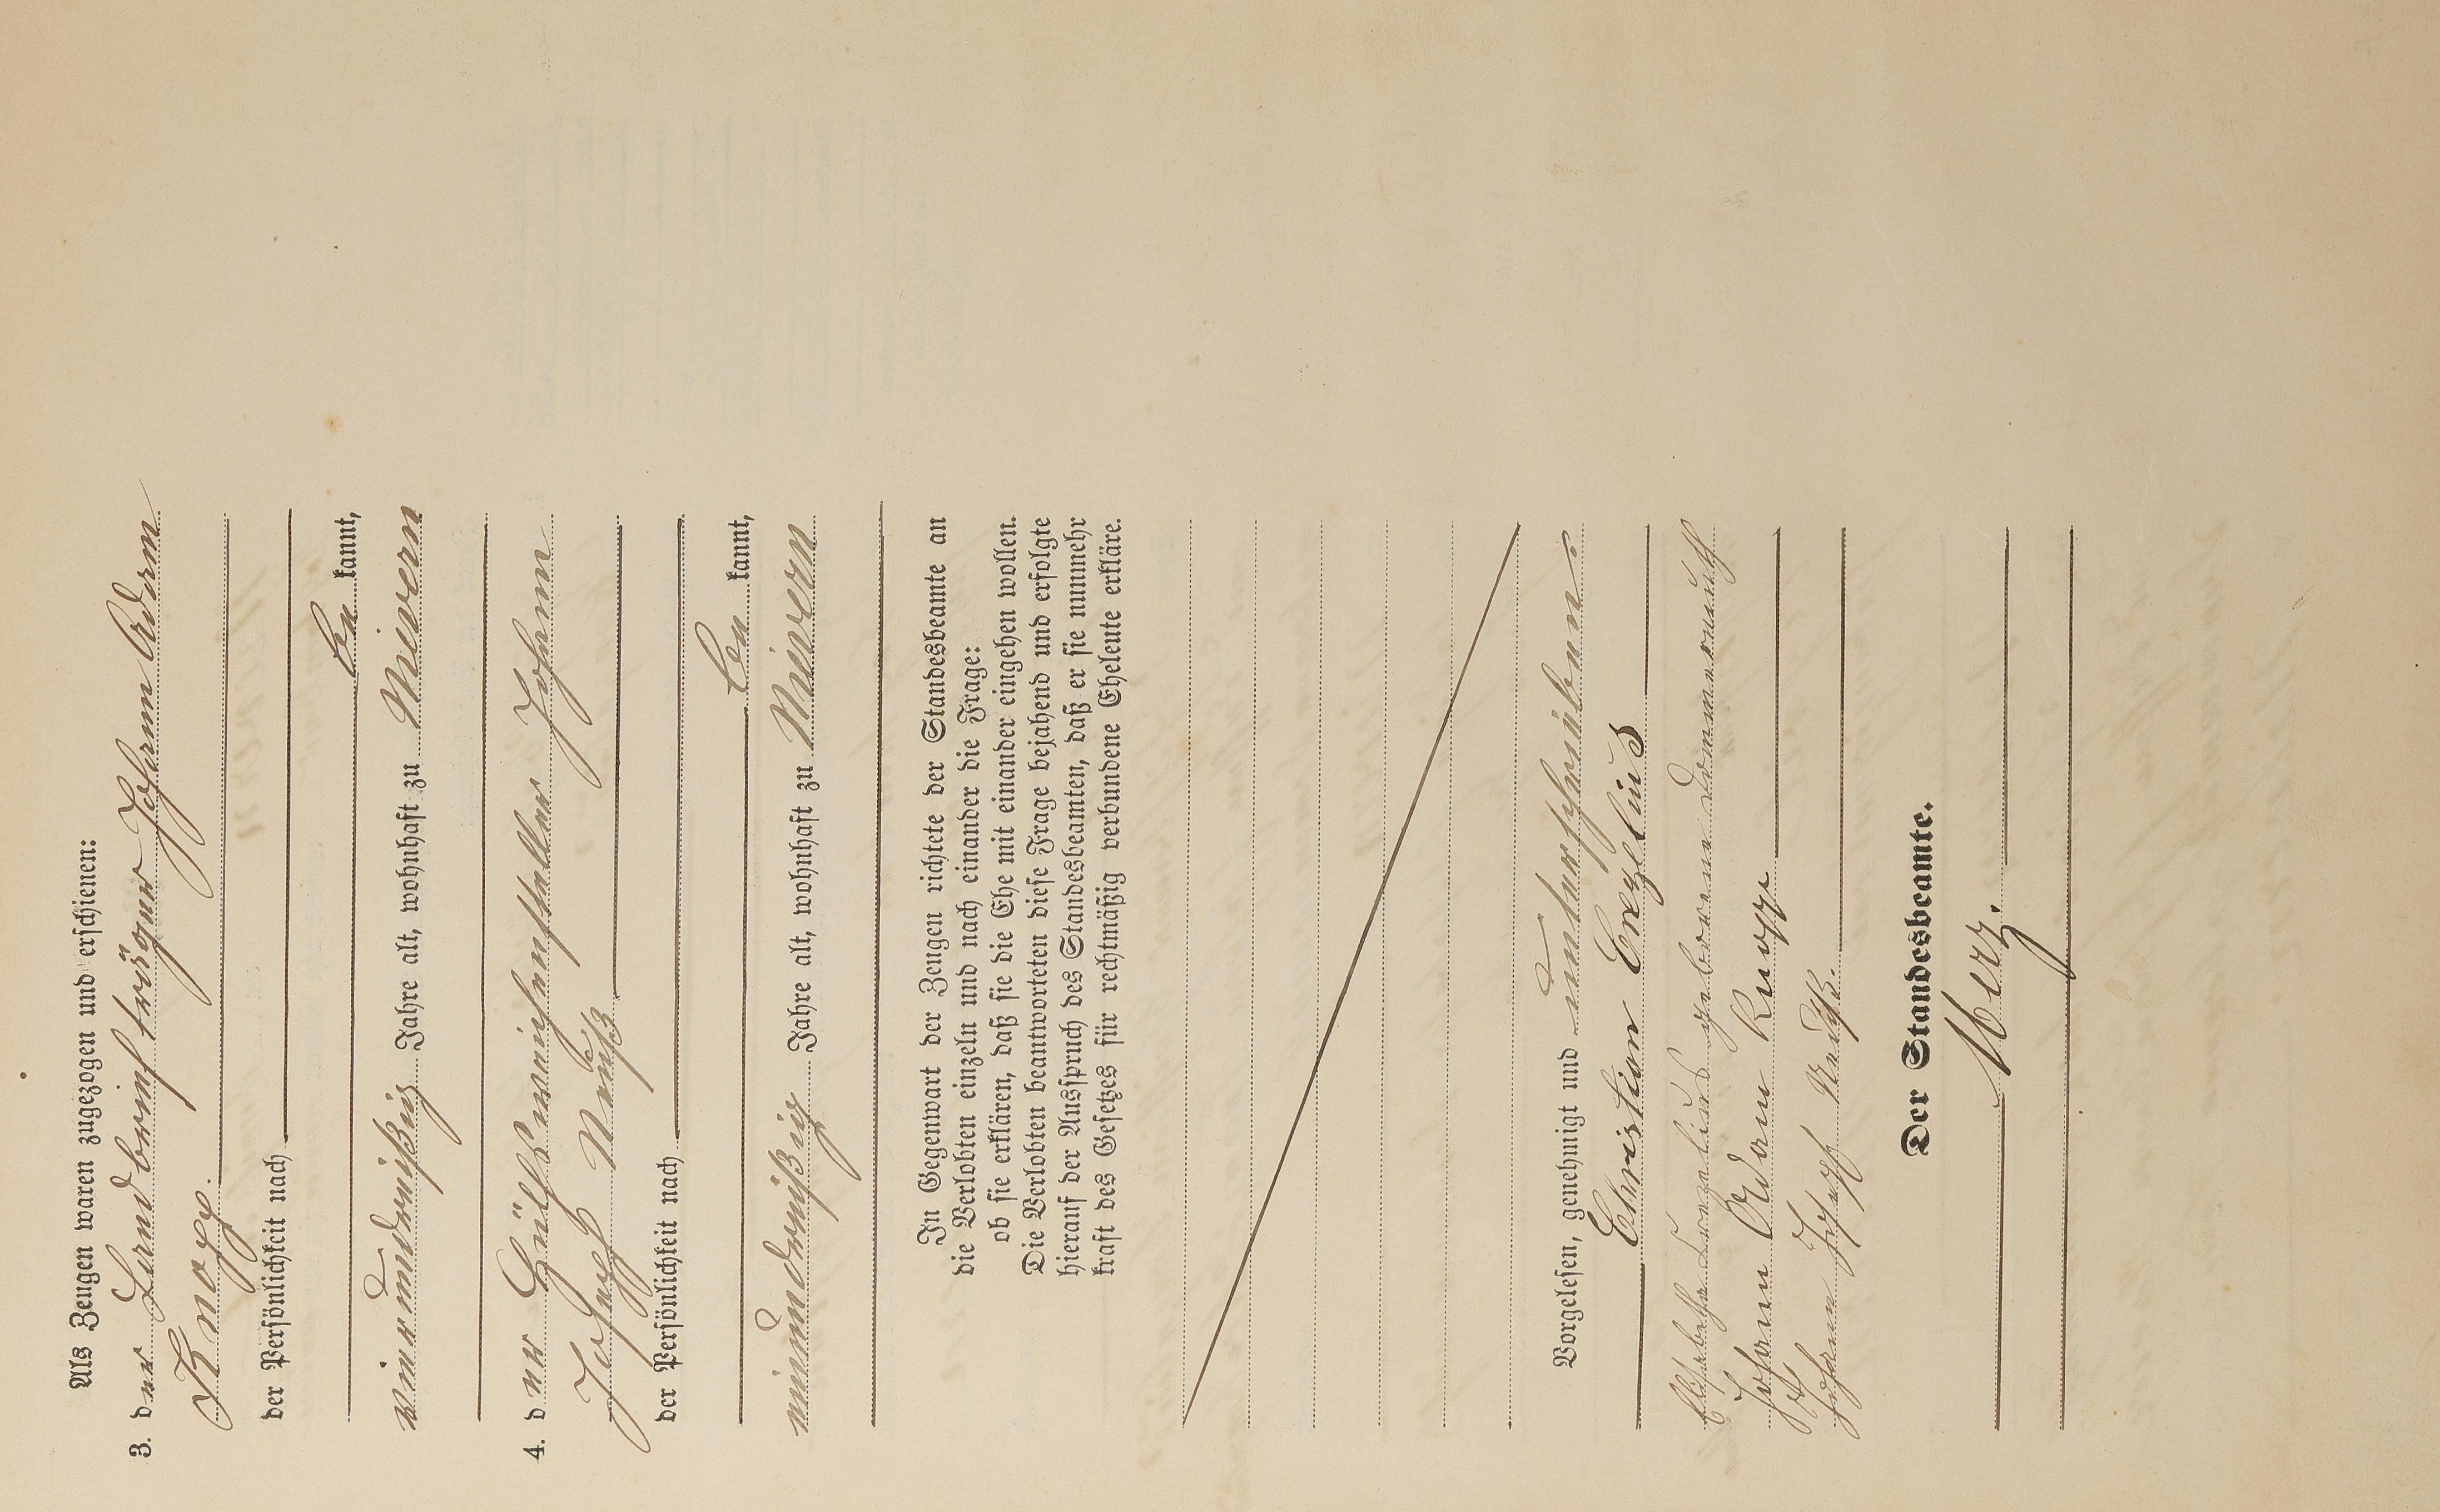 Als Zeugen waren zugezogen und erschienen:
3. der Landbriefträger Johann Adam
Knopp.
der Persönlichkeit nach
be kannt,
vierunddreißig Jahre alt, wohnhaft zu Mievern
4. der Hülfsweichensteller Johann
Joseph Neuß
der Persönlichkeit nach
be kannt,
neununddreißig Jahre alt, wohnhaft zu Mievern
In Gegenwart der Zeugen richtete der Standesbeamte an
die Verlobten einzeln und nach einander die Frage:
ob sie erklären, daß sie die Ehe mit einander eingehen wollen.
Die Verlobten beantworteten diese Frage bejahend und erfolgte
hierauf der Ausspruch des Standesbeamten, daß er sie nunmehr
kraft des Gesetzes für rechtmäßig verbundene Eheleute erkläre.
Vorgelesen, genehmigt und unterschrieben:
Christian
geborene
Johann Adam Knopp
Johann Joseph Neuß.
Der Standesbeamte.